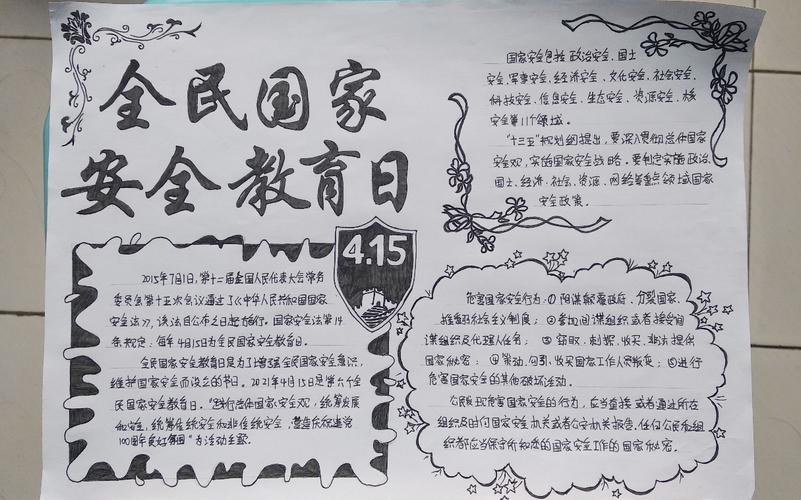 全民国家
安全教育日
4.15
2015年7月1日,第十二届全国人民代表大会常务
委员会第十五次会议通过了《中华人民共和国国家
安全法》,该法自公布之日起施行。国家安全法第14
条规定:每年4月15日为全民国家安全教育日。
全民国家安全教育日是为了增强全民国家安全意识,
维护国家安全而设立的节日。2021年4月15日是第六个全
民国家安全教育日。"践行总体国家安全观,统筹发展
和安全,统筹传统安全和非传统安全,营造庆祝建党
100周年良好氛围"为活动主题。
国家安全包括政治安全、国土
安全、军事安全、经济安全、文化安全、社会安全、
科技安全、信息安全、生态安全、资源安全、核
安全等11个领域。
"十三五"规划纲提出,要深入贯彻总体国家
安全观,实施国家安全战略。要制定实施政治、
国土、经济、社会、资源、网络等重点领域国家
安全政策。
危害国家安全行为:①阴谋颠覆政府、分裂国家、
推翻社会主义制度;②参加间谍组织或者接受间
谍组织及代理人任务;③窃取、刺探、收买、非法提供
国家秘密;④策动、勾引、收买国家工作人员叛变;⑤进行
危害国家安全的其他破坏活动。
公民发现危害国家安全的行为,应当直接或者通过所在
组织及时向国家安全机关或者公安机关报告,任何公民和组
织都应当保守所知悉的国家安全工作的国家秘密。